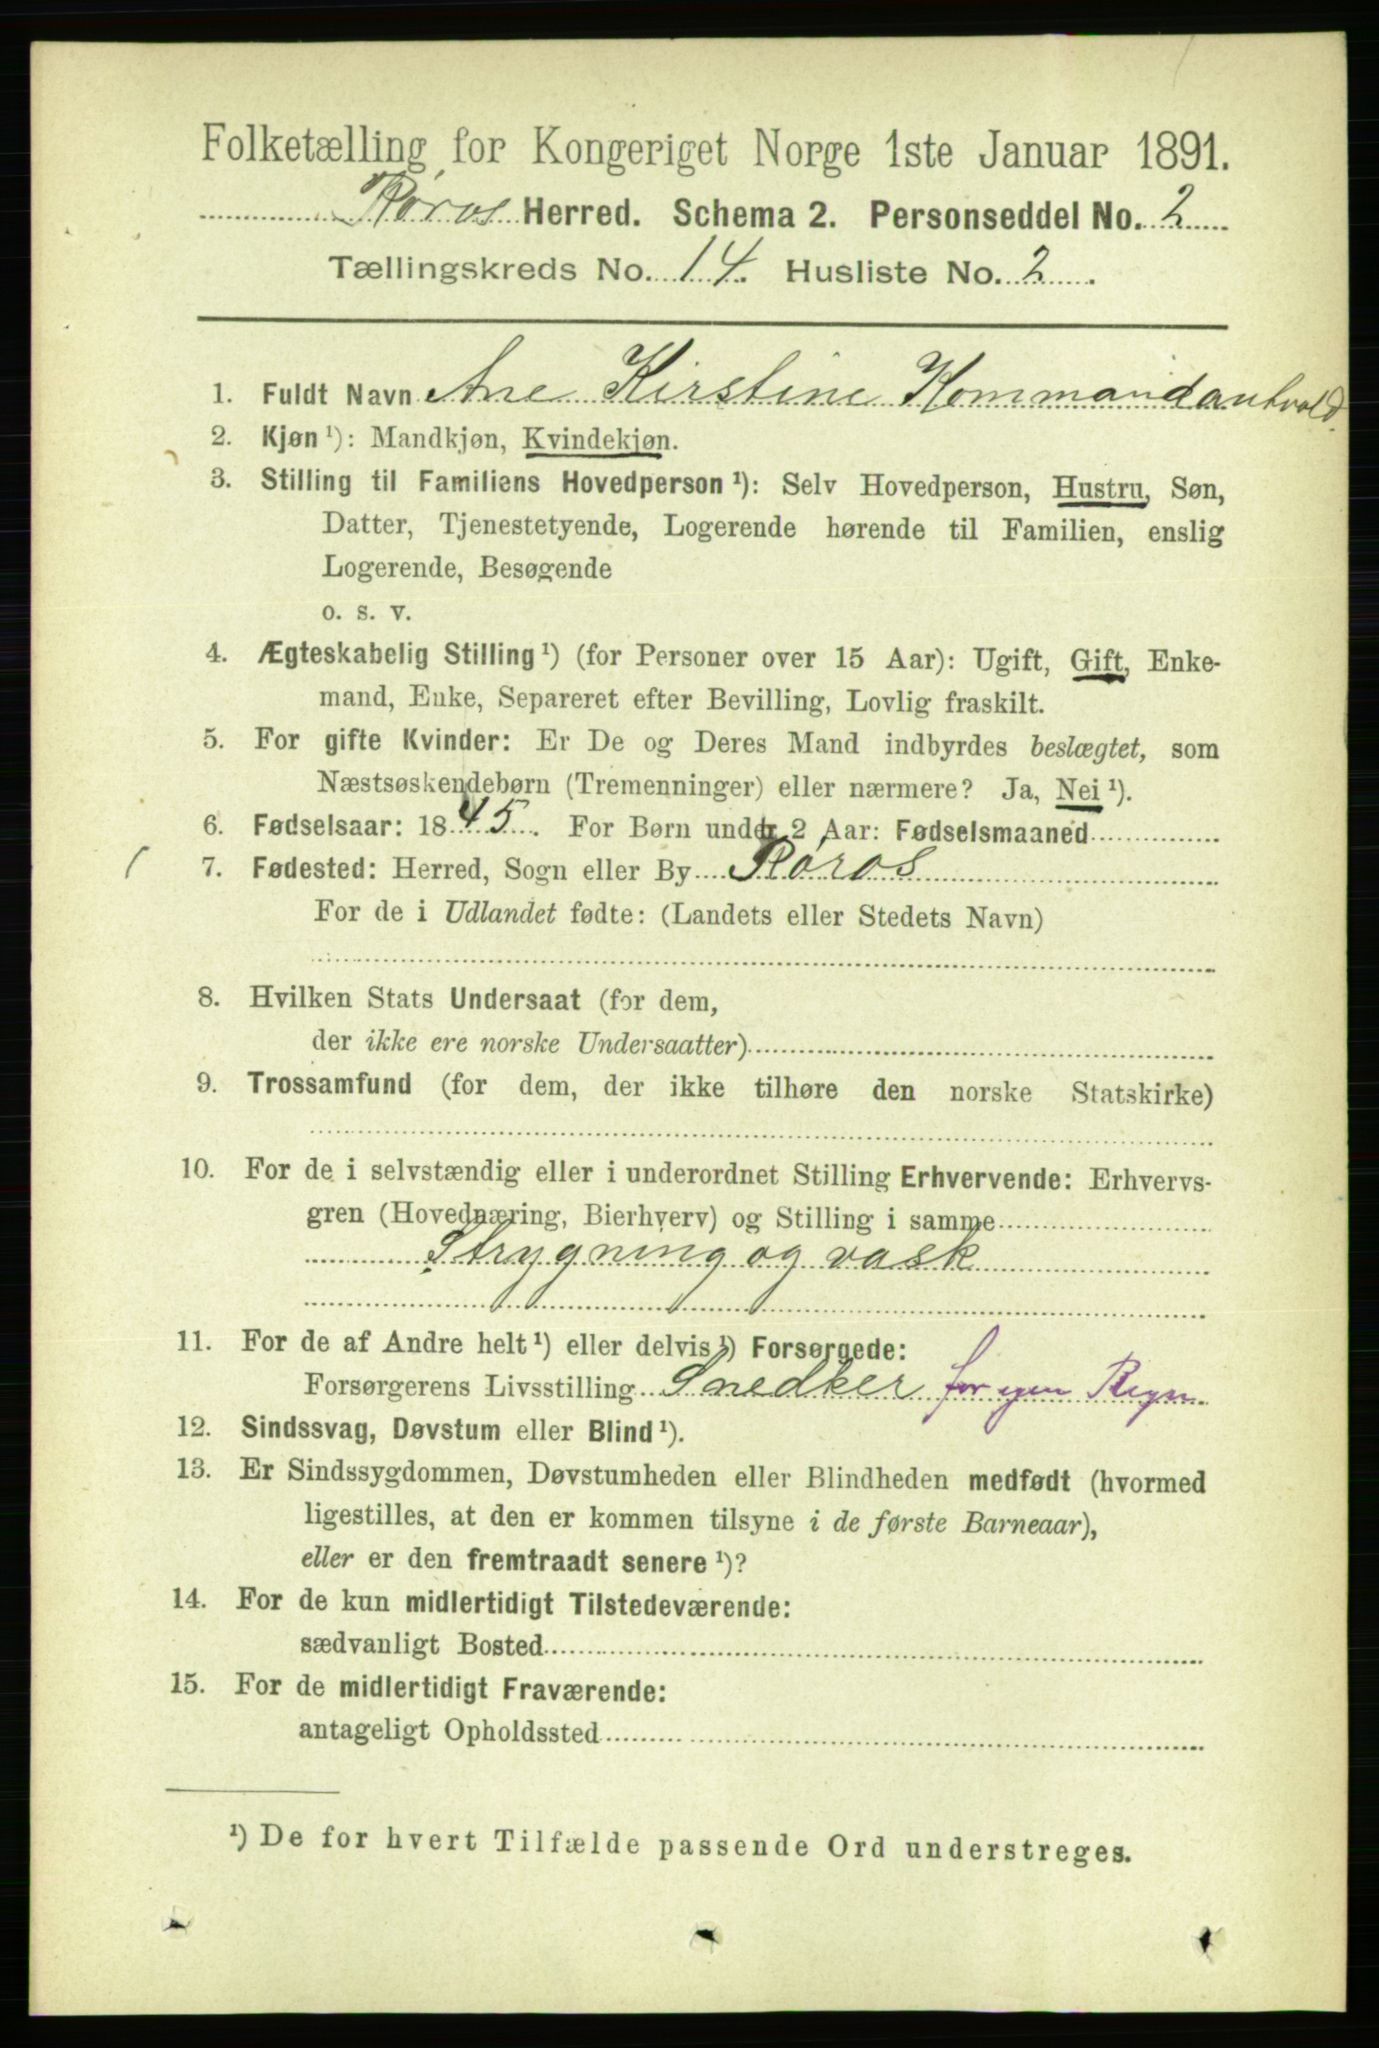 Folketælling for Kongeriget Norge 1ste Januar 1891.
Røros Herred. Schema 2. Personseddel No. 2
Tællingskreds No. 14. Husliste No. 2
1. Fuldt Navn Ane Kirstine Kommandantvold.
2. Kjøn ¹): Mandkjøn, Kvindekjøn.
3. Stilling til Familiens Hovedperson ¹): Selv Hovedperson, Hustru, Søn,
Datter, Tjenestetyende, Logerende hørende til Familien, enslig
Logerende, Besøgende
o. s. v.
4. Ægteskabelig Stilling ¹) (for Personer over 15 Aar): Ugift, Gift, Enke-
mand, Enke, Separeret efter Bevilling, Lovlig fraskilt.
5. For gifte Kvinder: Er De og Deres Mand indbyrdes beslægtet, som
Næstsøskendebørn (Tremenninger) eller nærmere? Ja, Nei ¹).
6. Fødselsaar: 1845. For Børn under 2 Aar: Fødselsmaaned
7. Fødested: Herred, Sogn eller By Røros
For de i Udlandet fødte: (Landets eller Stedets Navn)
8. Hvilken Stats Undersaat (for dem,
der ikke ere norske Undersaatter)
9. Trossamfund (for dem, der ikke tilhøre den norske Statskirke)
10. For de i selvstændig eller i underordnet Stilling Erhvervende: Erhvervs-
gren (Hovednæring, Bierhverv) og Stilling i samme
Strygning og vask
11. For de af Andre helt ¹) eller delvis ¹) Forsørgede:
Forsørgerens Livsstilling Snedker for egen Regn.
12. Sindssvag, Døvstum eller Blind ¹).
13. Er Sindssygdommen, Døvstumheden eller Blindheden medfødt (hvormed
ligestilles, at den er kommen tilsyne i de første Barneaar),
eller er den fremtraadt senere ¹)?
14. For de kun midlertidigt Tilstedeværende:
sædvanligt Bosted
15. For de midlertidigt Fraværende:
antageligt Opholdssted
¹) De for hvert Tilfælde passende Ord understreges.